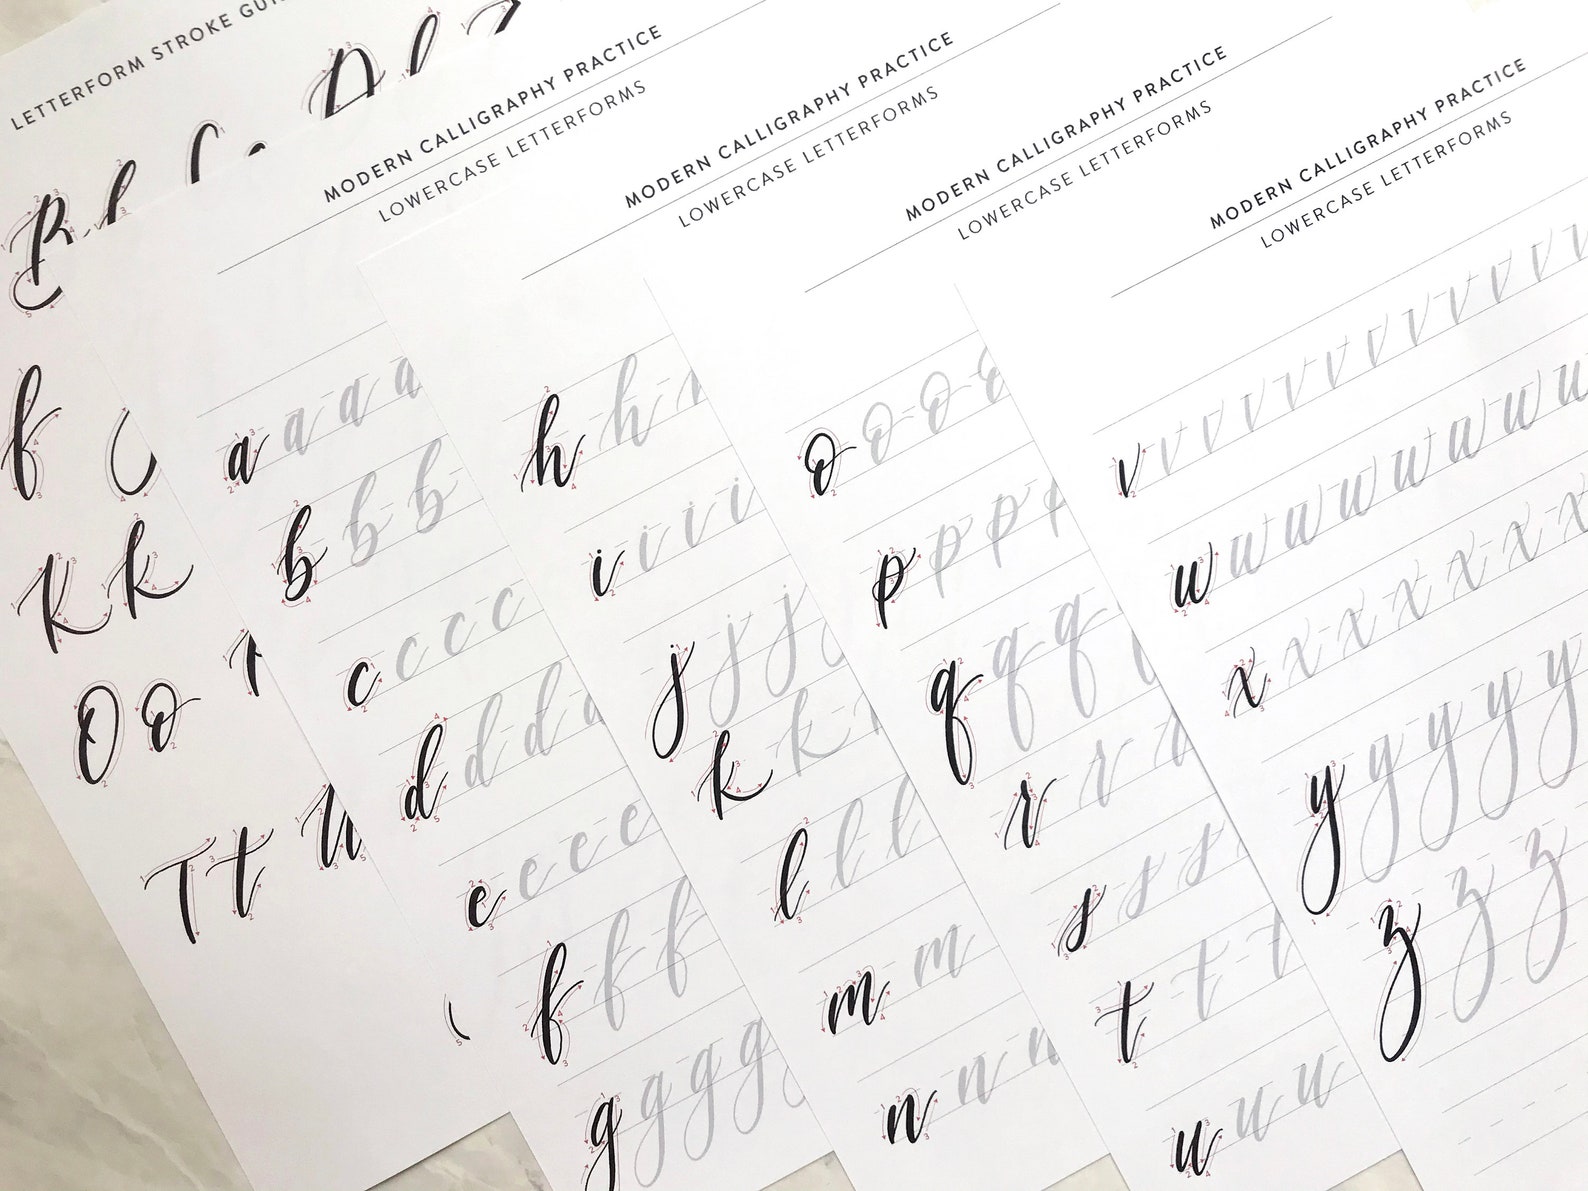 LETTERFORM STROKE
B b
f
K k
O o
T t
MODERN CALLIGRAPHY PRACTICE
LOWERCASE LETTERFORMS
a a a a
b b b
c c c c
d d d
e e e e
f f f
g g g g
MODERN CALLIGRAPHY PRACTICE
LOWERCASE LETTERFORMS
h h
i i i i
j j j
k k
l l l
m m
n n
MODERN CALLIGRAPHY PRACTICE
LOWERCASE LETTERFORMS
o o o
p p p
q q q
r r
s s s
t t
u u u
MODERN CALLIGRAPHY PRACTICE
LOWERCASE LETTERFORMS
v v v v v v v v v v v
w w w w w w w w
x x x x x x x
y y y y y y
z z z